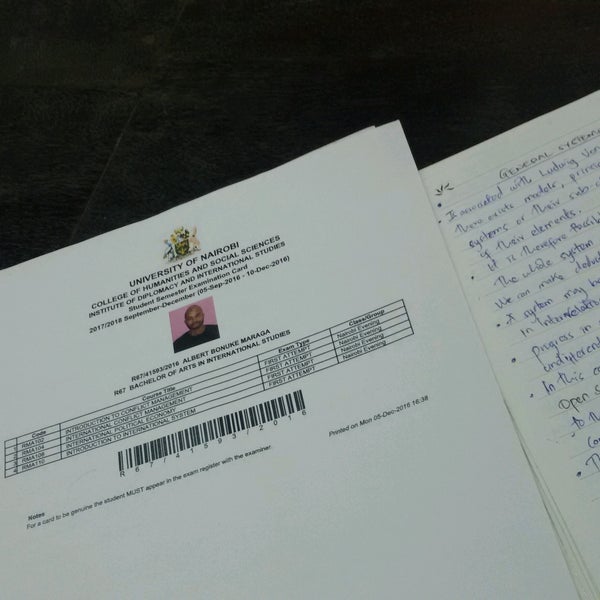 UNIVERSITY OF NAIROBI
COLLEGE OF HUMANITIES AND SOCIAL SCIENCES
INSTITUTE OF DIPLOMACY AND INTERNATIONAL STUDIES
Student Semester Examination Card
2017/2018 September-December (05-Sep-2016 - 10-Dec-2016)
R67/41593/2016 ALBERT BONUKE MARAGA
R67 BACHELOR OF ARTS IN INTERNATIONAL STUDIES
Code Course Title Exam Type Class/Group
INTRODUCTION TO CONFLICT MANAGEMENT FIRST ATTEMPT Nairobi Evening
INTERNATIONAL CONFLICT MANAGEMENT FIRST ATTEMPT Nairobi Evening
INTERNATIONAL POLITICAL ECONOMY FIRST ATTEMPT Nairobi Evening
INTRODUCTION TO INTERNATIONAL SYSTEM FIRST ATTEMPT Nairobi Evening
R67/41593/2016
Printed on Mon 05-Dec-2016 16:38
Notes
For a card to be genuine the student MUST appear in the exam register with the examiner.
GENERAL SYSTEMS
Is associated with Ludwig Von
there exists models, princi
systems or their sub-c
of their elements.
It is therefore possib
The whole system
We can make deduct
A system may be
in Interrelation
progress in
In this c
Open s
to th